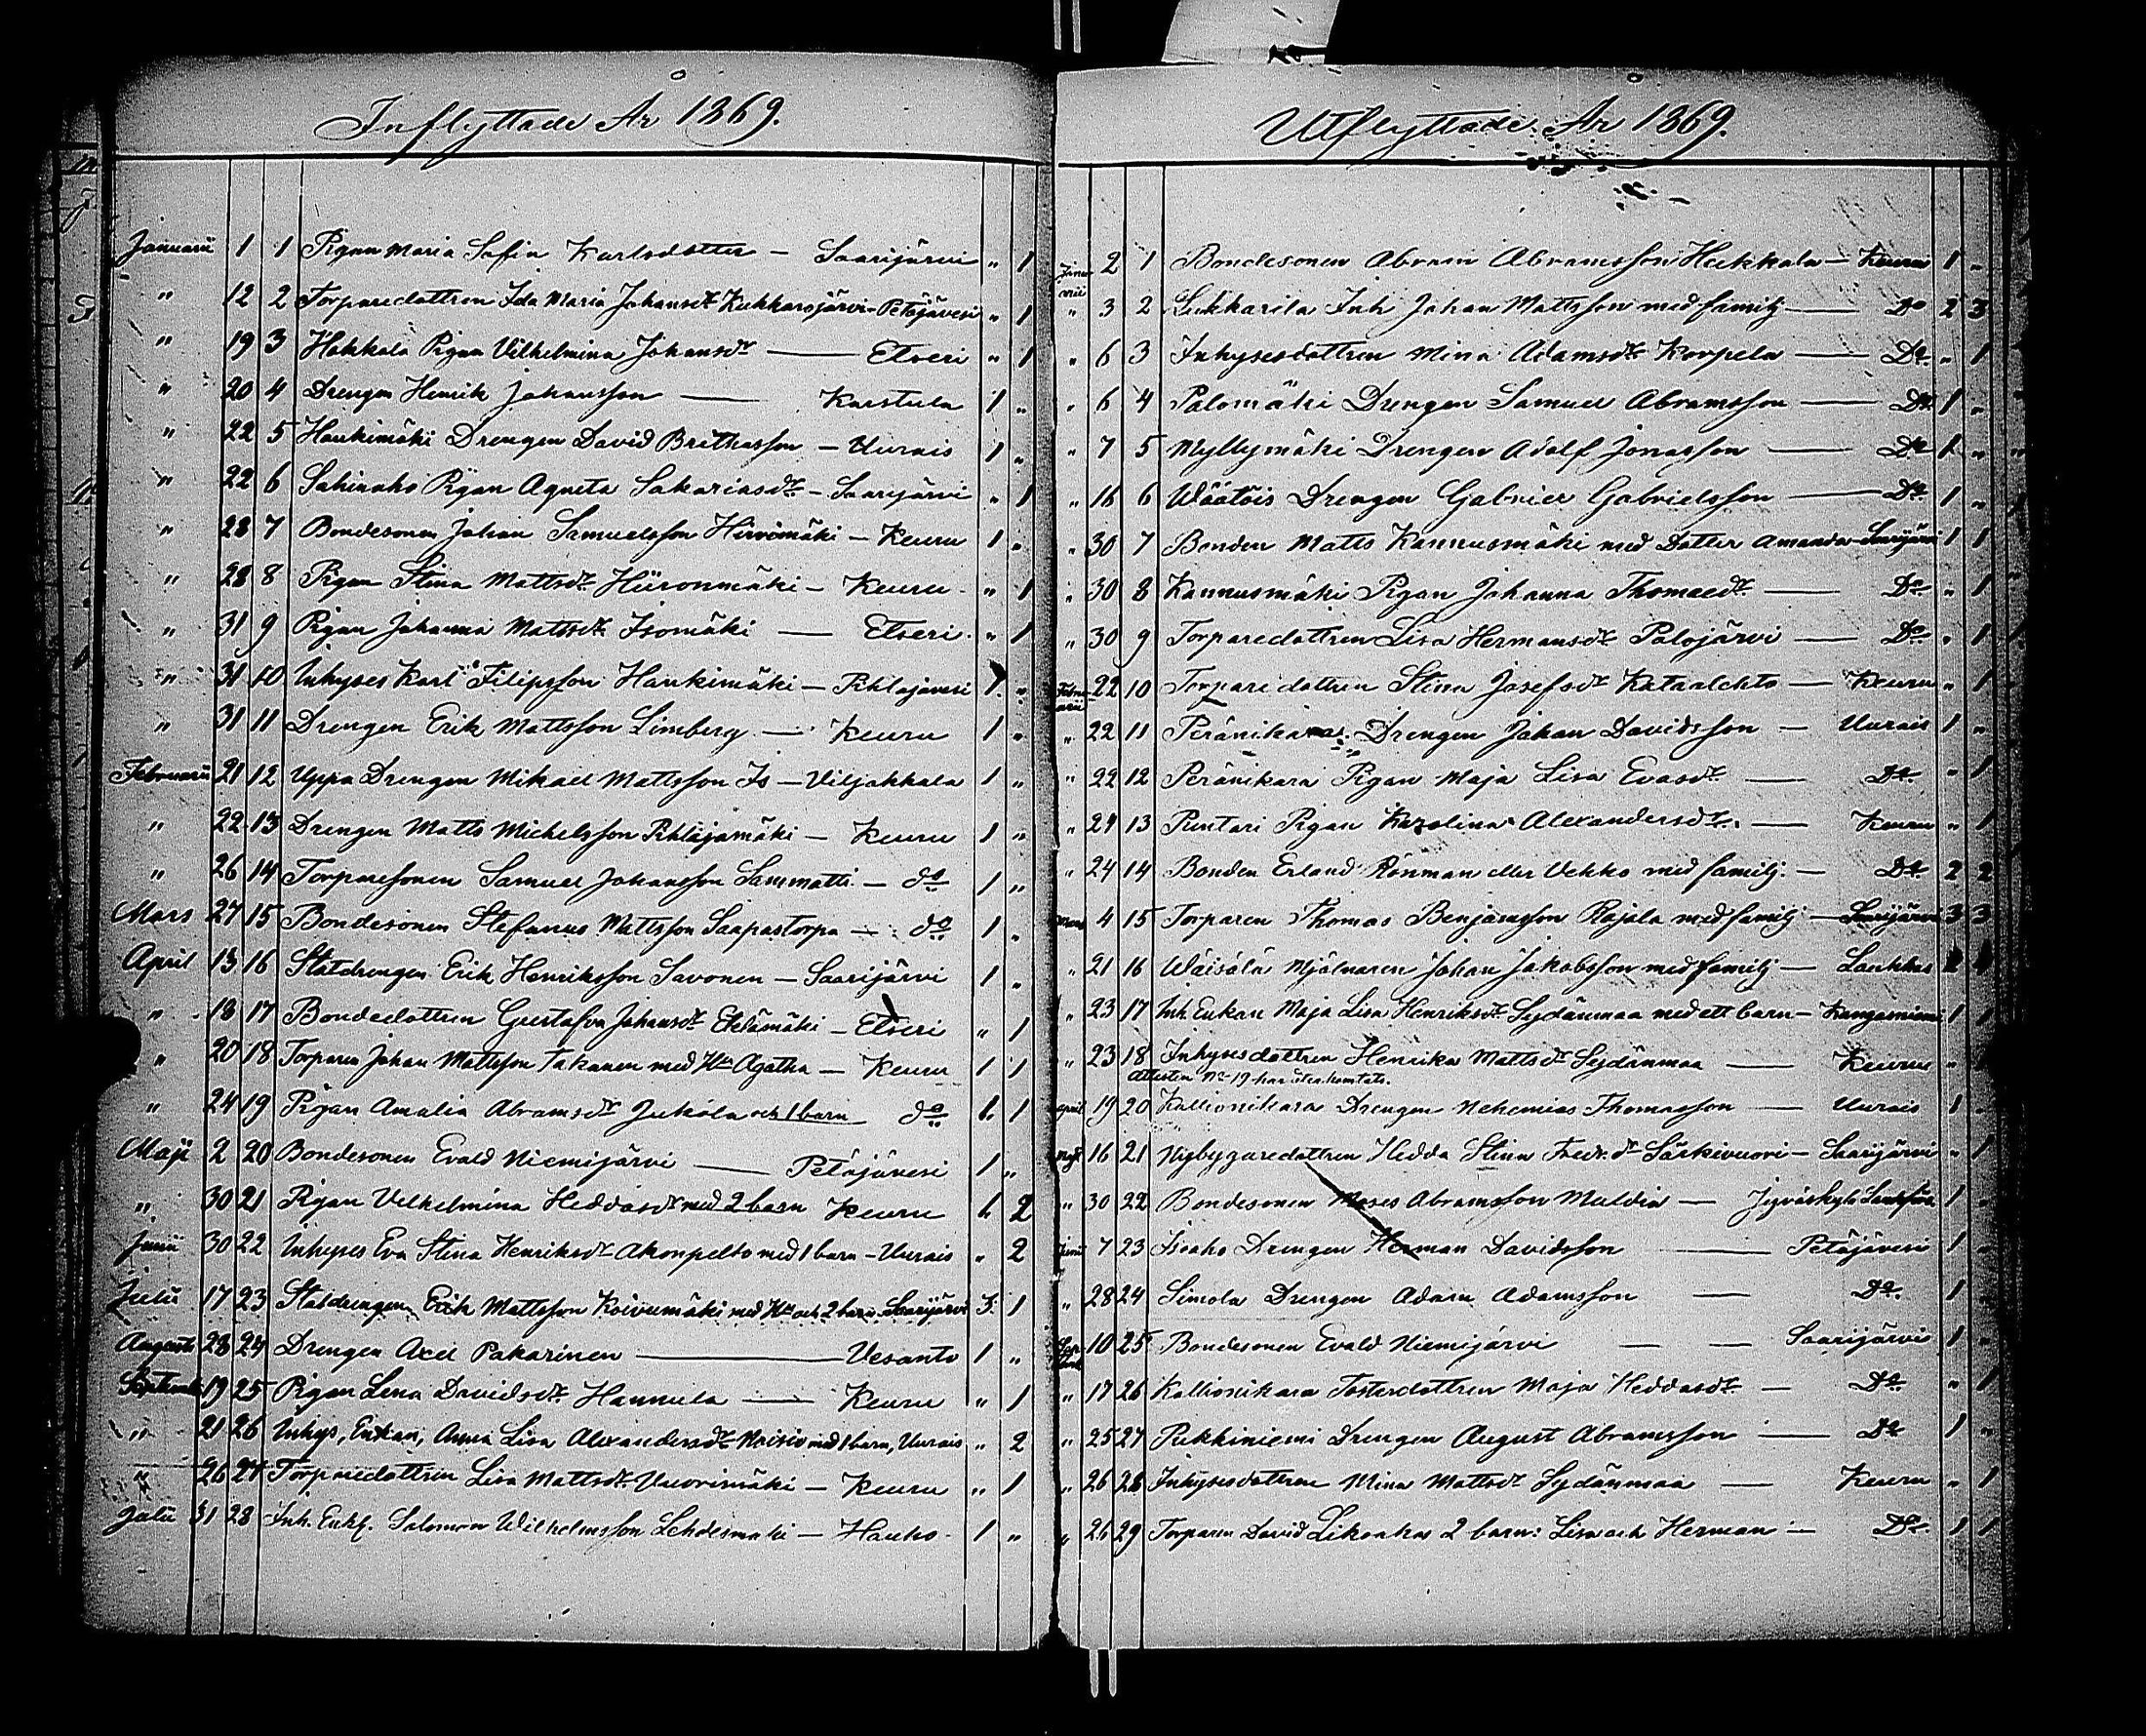 Inflyttade År 1869.
Januarii 1 1 Pigan Maria Sofia Karlsdotter – Saarijärvi " 1
" 12 2 Torparedottren Ida Maria Johansdr Kukkarojärvi – Petäjävesi " 1
" 19 3 Hakkala Pigan Vilhelmina Johansdr — Etseri " 1
" 20 4 Drengen Henrik Johansson — Karstula 1 "
" 22 5 Haukimäki Drengen David Brithasson – Uurais 1 "
" 22 6 Sahinaho Pigan Agneta Sakariasdr – Saarijärvi " 1
" 28 7 Bondesonen Johan Samuelsson Hirvimäki – Keuru 1 "
" 28 8 Pigan Stina Mattsdr Hiironmäki – Keuru " 1
" 31 9 Pigan Johanna Mattsdr Isomäki — Etseri " 1
" 31 10 Inhyses Karl Filipsson Haukimäki – Pihlajavesi 1 "
" 31 11 Drengen Erik Mattsson Limberg – Keuru 1 "
Februarii 21 12 Uppa Drengen Mikael Mattsson Is – Viljakkala 1 "
" 22 13 Drengen Matts Michelsson Pihlajamäki – Keuru 1 "
" 26 14 Torparesonen Samuel Johansson Sammatti – do 1 "
Mars 27 15 Bondesonen Stefanus Mattsson Saapastorpa – do 1 "
April 13 16 Statdrengen Erik Henriksson Savonen – Saarijärvi 1 "
" 18 17 Bondedottren Gustafva Johansdr Etelämäki – Etseri " 1
" 20 18 Torparen Johan Mattsson Takanen med Hu Agatha – Keuru 1 1
" 24 19 Pigan Amalia Abramsdr Jukola och 1 barn do 1 1
Maji 2 20 Bondesonen Evald Niemijärvi — Petäjävesi 1 "
" 30 21 Pigan Vilhelmina Heddasdr med 2 barn Keuru 1 2
Junii 30 22 Inhyses Eva Stina Henriksdr Akonpelto med 1 barn – Uurais " 2
Julii 17 23 Statdrengen Erik Mattsson Koivumäki med Hu och 2 barn Saarijärvi 3 1
Augusti 28 24 Drengen Axel Pakarinen — Vesanto 1 "
Septemb 19 25 Pigan Lena Davidsdr Hannula — Keuru " 1
" 21 26 Inhys. Enkan, Anna Lisa Alexandersdr Moisio med 1 barn, Uurais " 2
" 26 27 Torparedottren Lisa Mattsdr Vuorimäki – Keuru " 1
Julii 31 28 Inh. Enkl. Salomon Wilhelmsson Lehdesmäki – Hauho 1 "
Utflyttade År 1869.
Januarii 2 1 Bondesonen Abram Abramsson Hakkala – Keuru 1 "
" 3 2 Lukkarila Inh Johan Mattsson med familj — Do 2 3
" 6 3 Inhysesdottren Mina Adamsdr Korpela — Do " 1
" 6 4 Palomäki Drengen Samuel Abramsson — Do 1 "
" 7 5 Myllymäki Drengen Adolf Jonasson — Do 1 "
" 16 6 Wäätäis Drengen Gabriel Gabrielsson — Do 1 "
" 30 7 Bonden Matts Kannusmäki med Dotter Amanda – Saarijärvi 1 1
" 30 8 Kannusmäki Pigan Johanna Thomasdr — Do " 1
" 30 9 Torparedottren Lisa Hermansdr Palojärvi — Do " 1
Februarii 22 10 Torparedottren Stina Josefsdr Kataalehto – Keuru " 1
" 22 11 Peränikara Drengen Johan Davidsson – Uurais 1 "
" 22 12 Peränikara Pigan Maja Lisa Evasdr — Do " 1
" 24 13 Puntari Pigan Karolina Alexandersdr — Keuru " 1
" 24 14 Bonden Erland Rönman eller Vekko med familj – Do 2 2
Mars 4 15 Torparen Thomas Benjamsson Rajala med familj – Saarijärvi 3 3
" 21 16 Wäisälä Mjölnaren Johan Jakobsson med familj – Laukkas
" 23 17 Inh Enkan Maja Lisa Henriksdr Sydänmaa med ett barn – Kangasniemi 1 1
" 23 18 Inhysesdottren Henrika Mattsdr Sydänmaa — Keuru " 1
Attesten No 19 har återkomtats.
April 19 20 Kallionikara Drengen Nehemias Thomasson — Uurais 1 "
Maji 16 21 Nybyggaredottren Hedda Stina Fredr.dr Särkivuori – Saarijärvi " 1
" 30 22 Bondesonen Moses Abramsson Muldia — Jyväskylä Landsförs 1 "
Junii 7 23 Isoaho Drengen Herman Davidsson — Petäjävesi 1 "
" 28 24 Simola Drengen Adam Adamsson — Do 1 "
Septemb 10 25 Bondesonen Evald Niemijärvi — — Saarijärvi 1 "
" 17 26 Kallionikara Fosterdottren Maja Heddasdr – Do " 1
" 25 27 Pukkiniemi Drengen August Abramsson — Do 1 "
" 26 28 Inhysesdottren Mina Mattsdr Sydänmaa — Keuru " 1
" 26 29 Torparen David Likoahos 2 barn: Lisa och Herman – Do 1 1